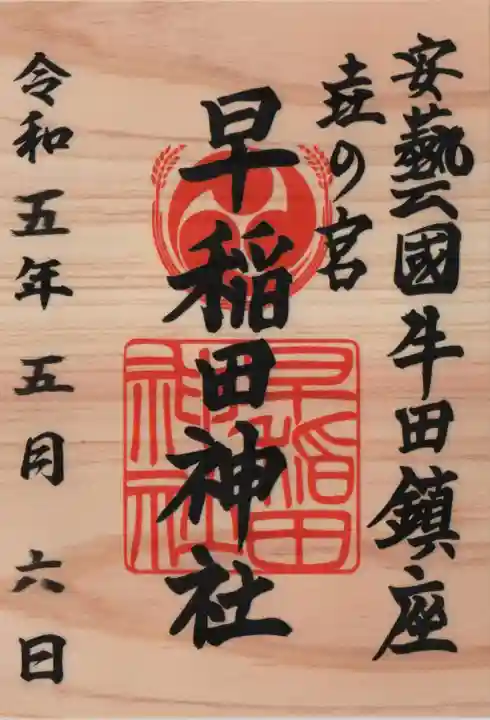 安藝國牛田鎮座
壹の宮
早稲田神社
早稲田
神社
令和五年五月六日